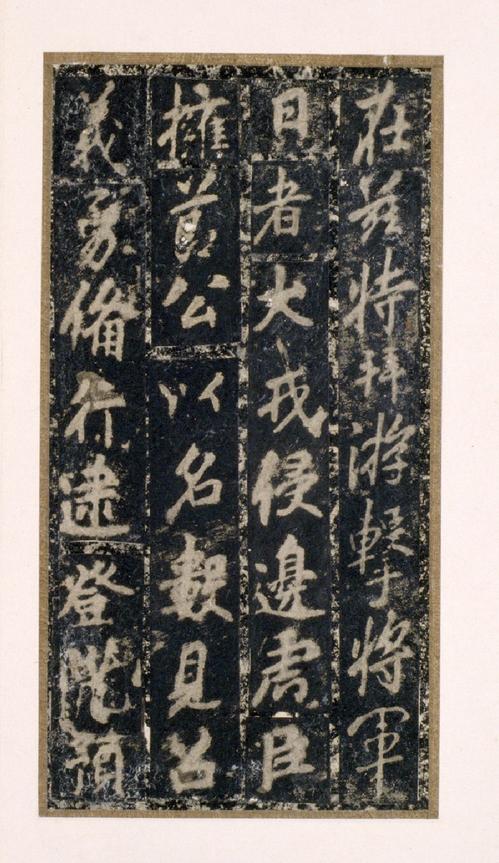 在茲特拜游擊將軍
日者犬戎侵邊虜臣
擁節公以名數見召
義勇備行逮登